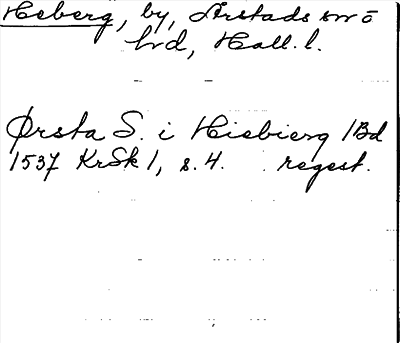 Heberg, by, Årstads sn o
hd, Hall. l.
Ørsta S. i Hiebierg /Bd
1537 KrSk 1, s. 4. regest.